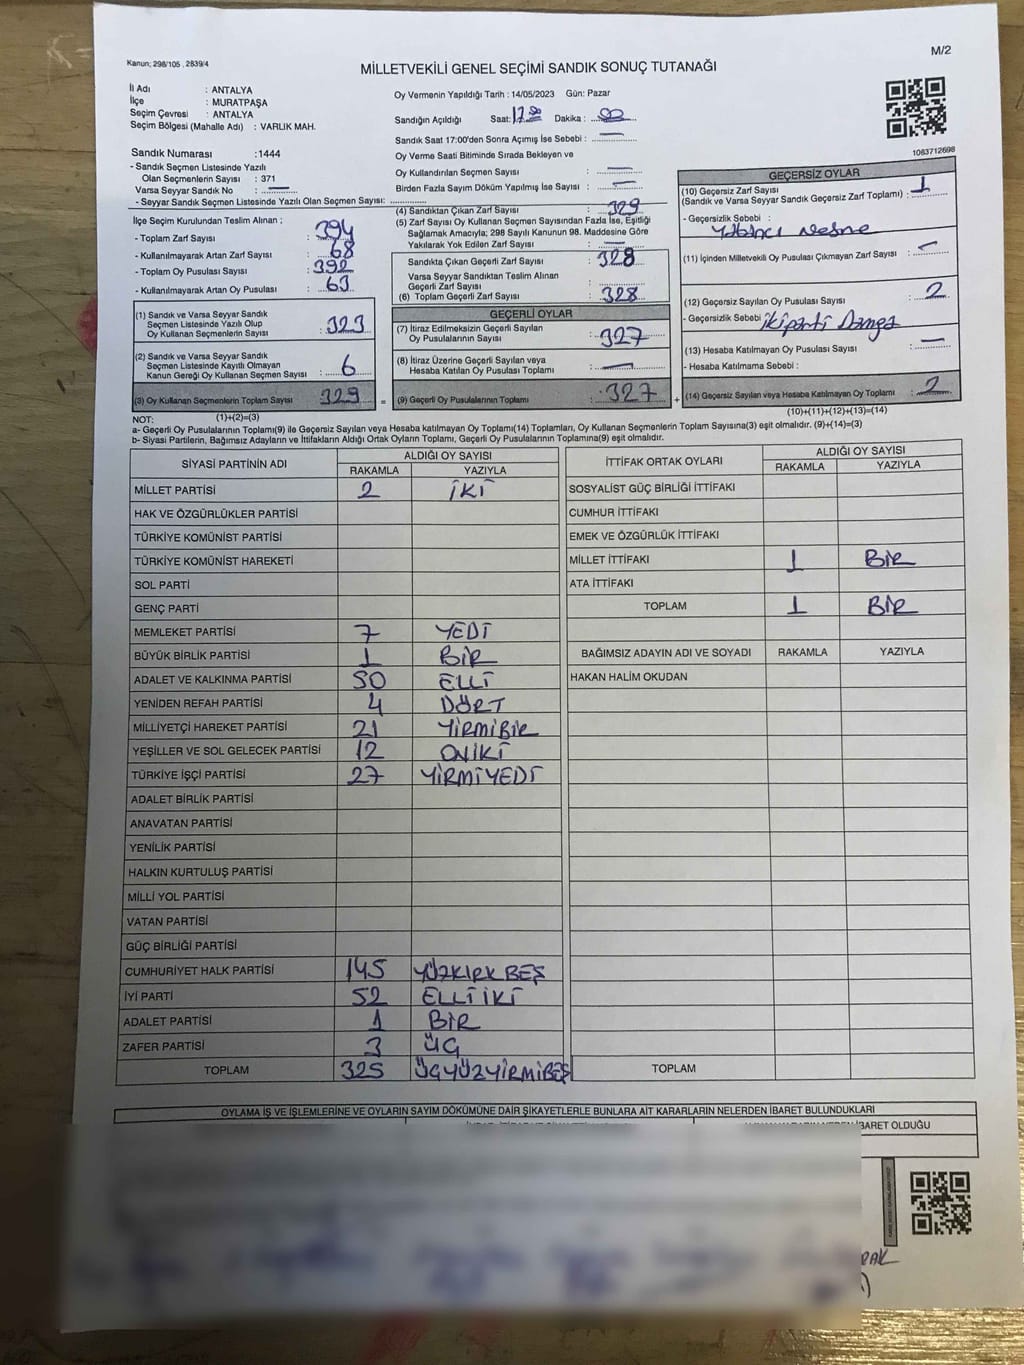 Kanun; 298/105 , 2839/4
M/2
MİLLETVEKİLİ GENEL SEÇİMİ SANDIK SONUÇ TUTANAĞI
İl Adı : ANTALYA
İlçe : MURATPAŞA
Seçim Çevresi : ANTALYA
Seçim Bölgesi (Mahalle Adı) : VARLIK MAH.
Oy Vermenin Yapıldığı Tarih : 14/05/2023 Gün: Pazar
Sandığın Açıldığı Saat: 17.00 Dakika : 00
Sandık Saat 17:00'den Sonra Açımış İse Sebebi : —
Oy Verme Saati Bitiminde Sırada Bekleyen ve
Oy Kullandırılan Seçmen Sayısı : —
Birden Fazla Sayım Döküm Yapılmış İse Sayısı : —
1083712698
Sandık Numarası :1444
- Sandık Seçmen Listesinde Yazılı
Olan Seçmenlerin Sayısı : 371
Varsa Seyyar Sandık No : —
- Seyyar Sandık Seçmen Listesinde Yazılı Olan Seçmen Sayısı:
İlçe Seçim Kurulundan Teslim Alınan ;
- Toplam Zarf Sayısı : 394
- Kullanılmayarak Artan Zarf Sayısı : 68
- Toplam Oy Pusulası Sayısı : 392
- Kullanılmayarak Artan Oy Pusulası : 63
(1) Sandık ve Varsa Seyyar Sandık
Seçmen Listesinde Yazılı Olup
Oy Kullanan Seçmenlerin Sayısı : 323
(2) Sandık ve Varsa Seyyar Sandık
Seçmen Listesinde Kayıtlı Olmayan
Kanun Gereği Oy Kullanan Seçmen Sayısı : 6
(3) Oy Kullanan Seçmenlerin Toplam Sayısı : 329
(1)+(2)=(3)
(4) Sandıktan Çıkan Zarf Sayısı : 329
(5) Zarf Sayısı Oy Kullanan Seçmen Sayısından Fazla İse, Eşitliği
Sağlamak Amacıyla; 298 Sayılı Kanunun 98. Maddesine Göre
Yakılarak Yok Edilen Zarf Sayısı : —
Sandıkta Çıkan Geçerli Zarf Sayısı : 328
Varsa Seyyar Sandıktan Teslim Alınan
Geçerli Zarf Sayısı :
(6) Toplam Geçerli Zarf Sayısı : 328
GEÇERLİ OYLAR
(7) İtiraz Edilmeksizin Geçerli Sayılan
Oy Pusulalarının Sayısı : 327
(8) İtiraz Üzerine Geçerli Sayılan veya
Hesaba Katılan Oy Pusulası Toplamı : —
= (9) Geçerli Oy Pusulalarının Toplamı : 327 +
GEÇERSİZ OYLAR
(10) Geçersiz Zarf Sayısı
(Sandık ve Varsa Seyyar Sandık Geçersiz Zarf Toplamı) : 1
- Geçersizlik Sebebi :
Yabancı Nesne
(11) İçinden Milletvekili Oy Pusulası Çıkmayan Zarf Sayısı : —
(12) Geçersiz Sayılan Oy Pusulası Sayısı : 2
- Geçersizlik Sebebi : iki parti Damga
(13) Hesaba Katılmayan Oy Pusulası Sayısı : —
- Hesaba Katılmama Sebebi :
(14) Geçersiz Sayılan veya Hesaba Katılmayan Oy Toplamı : 2
(10)+(11)+(12)+(13)=(14)
NOT:
a- Geçerli Oy Pusulalarının Toplamı(9) ile Geçersiz Sayılan veya Hesaba katılmayan Oy Toplamı(14) Toplamları, Oy Kullanan Seçmenlerin Toplam Sayısına(3) eşit olmalıdır. (9)+(14)=(3)
b- Siyasi Partilerin, Bağımsız Adayların ve İttifakların Aldığı Ortak Oyların Toplamı, Geçerli Oy Pusulalarının Toplamına(9) eşit olmalıdır.
SİYASİ PARTİNİN ADI ALDIĞI OY SAYISI
RAKAMLA YAZIYLA
MİLLET PARTİSİ 2 İKİ
HAK VE ÖZGÜRLÜKLER PARTİSİ
TÜRKİYE KOMÜNİST PARTİSİ
TÜRKİYE KOMÜNİST HAREKETİ
SOL PARTİ
GENÇ PARTİ
MEMLEKET PARTİSİ 7 YEDİ
BÜYÜK BİRLİK PARTİSİ 1 BİR
ADALET VE KALKINMA PARTİSİ 50 ELLİ
YENİDEN REFAH PARTİSİ 4 DÖRT
MİLLİYETÇİ HAREKET PARTİSİ 21 YİRMİBİR
YEŞİLLER VE SOL GELECEK PARTİSİ 12 ONİKİ
TÜRKİYE İŞÇİ PARTİSİ 27 YİRMİYEDİ
ADALET BİRLİK PARTİSİ
ANAVATAN PARTİSİ
YENİLİK PARTİSİ
HALKIN KURTULUŞ PARTİSİ
MİLLİ YOL PARTİSİ
VATAN PARTİSİ
GÜÇ BİRLİĞİ PARTİSİ
CUMHURİYET HALK PARTİSİ 145 YÜZKIRK BEŞ
İYİ PARTİ 52 ELLİ İKİ
ADALET PARTİSİ 1 BİR
ZAFER PARTİSİ 3 ÜÇ
TOPLAM 325 ÜÇYÜZYİRMİBEŞ
İTTİFAK ORTAK OYLARI ALDIĞI OY SAYISI
RAKAMLA YAZIYLA
SOSYALIST GÜÇ BİRLİĞİ İTTİFAKI
CUMHUR İTTİFAKI
EMEK VE ÖZGÜRLÜK İTTİFAKI
MİLLET İTTİFAKI 1 BİR
ATA İTTİFAKI
TOPLAM 1 BİR
BAĞIMSIZ ADAYIN ADI VE SOYADI RAKAMLA YAZIYLA
HAKAN HALİM OKUDAN
TOPLAM
OYLAMA İŞ VE İŞLEMLERİNE VE OYLARIN SAYIM DÖKÜMÜNE DAİR ŞİKAYETLERLE BUNLARA AİT KARARLARIN NELERDEN İBARET BULUNDUKLARI
İBARET OLDUĞU